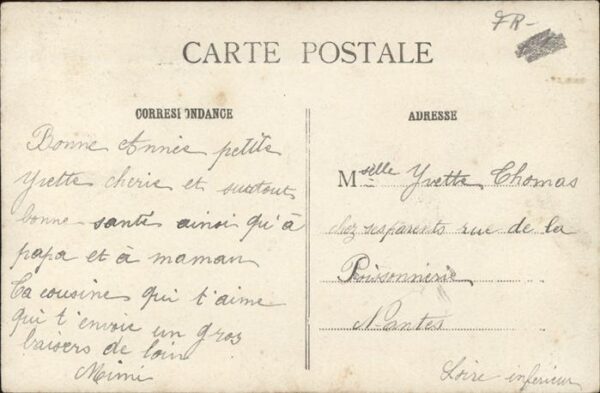 FR-
CARTE POSTALE
CORRESPONDANCE
Bonne Année petite
Yvette cherie et surtout
bonne santé ainsi qu'à
papa et à maman
Ta cousine qui t'aime
qui t'envoie un gros
baisers de loin
Mimi
ADRESSE
Mselle Yvette Thomas
chez ses parents rue de la
Poissonnerie
Nantes
Loire inférieur